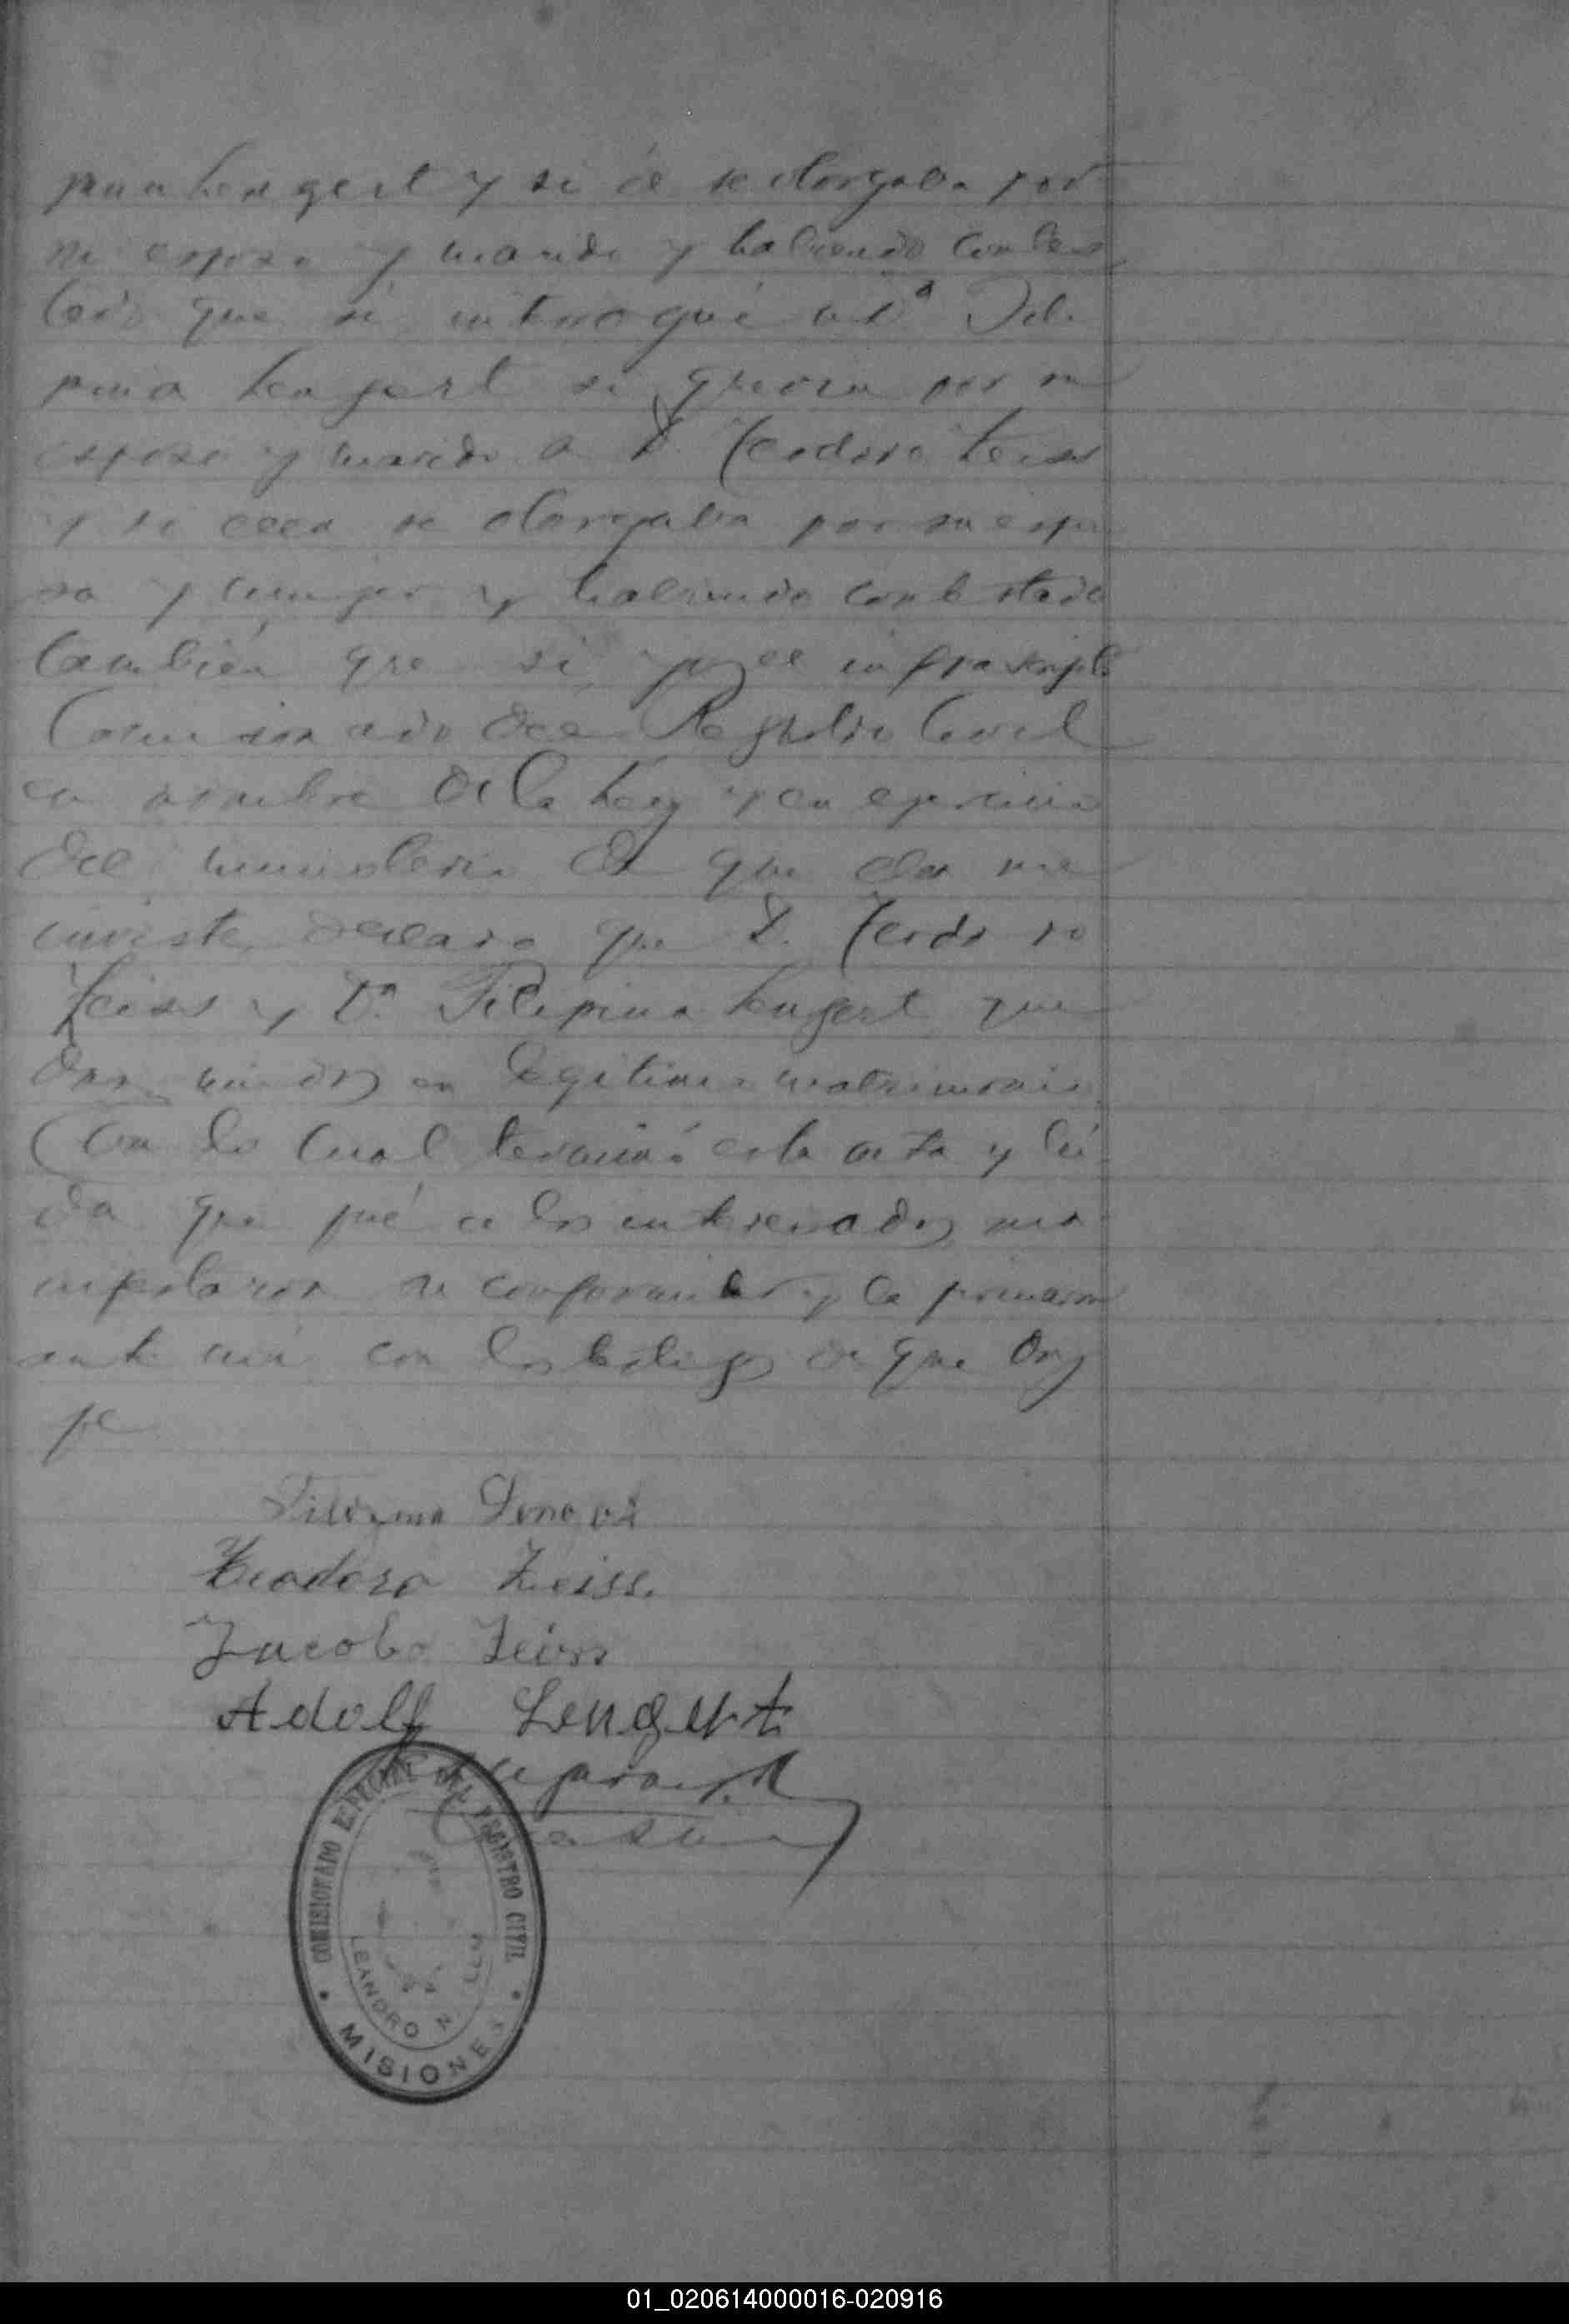 pina Lengert y si él se otorgaba por
su esposo y marido y habiendo contes
tado que sí interrogué a Dª Fili
pina Lengert si quería por su
esposo y marido a D. Teodoro Zeiss
y si ella se otorgaba por su espo
sa y mujer y habiendo contestado
también que sí yo el infrascripto
Comisionado del Registro Civil
en nombre de la Ley y en ejercicio
del ministerio de que ella me
inviste declaro que D. Teodoro
Zeiss y Dª Filipina Lengert que
dan unidos en legítimo matrimonio.
Con lo cual terminó esta acta y leí
da que fué a los interesados ma
nifestaron su conformidad y la firmaron
ante mí con los testigos de que doy
fe
Filipina
Teodoro Zeiss.
Jacobo Zeiss
Adolf Lengert
COMISIONADO ESPECIAL DEL REGISTRO CIVIL
LEANDRO N. ALEM
MISIONES
01_020614000016-020916